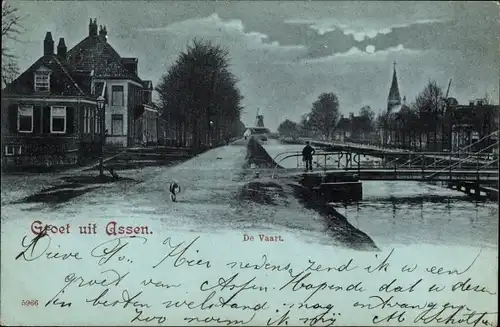 Groet uit Assen.
De Vaart.
Lieve To, Hier nevens zend ik u een
groet van Assen. Hopende dat u deze
in den besten welstand mag ontvangen
zoo noem ik mij M Scholten
5966